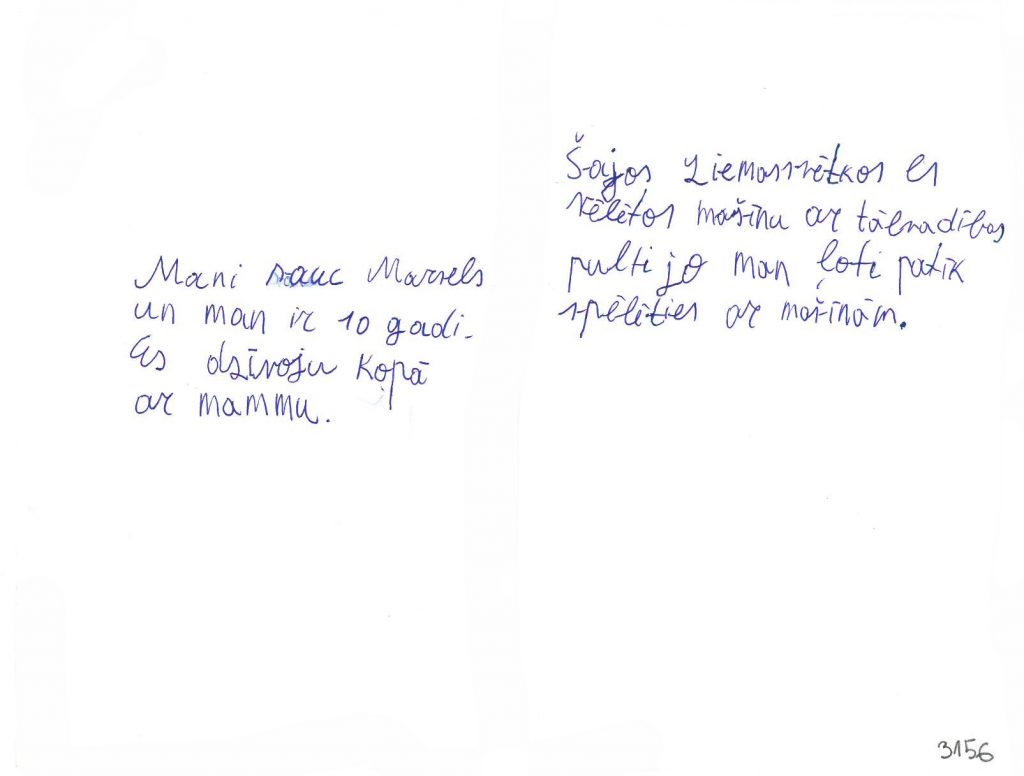 Mani sauc Marsels
un man ir 10 gadi.
Es dzīvoju kopā
ar mammu.
Šajos Ziemassvētkos es
vēlētos mašīnu ar tālvadības
pulti jo man ļoti patīk
spēlēties ar mašīnām.
3156